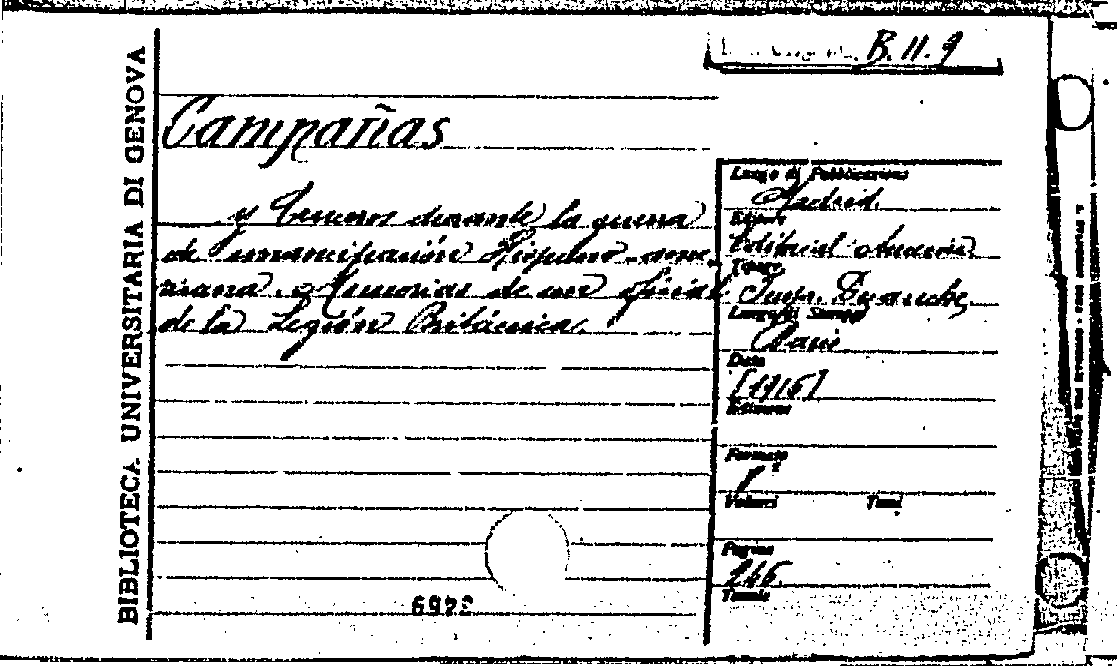 B. II. 9
BIBLIOTECA UNIVERSITARIA DI GENOVA
Campañas
y Cruceros durante la guerra
de emancipación Hispano-ame-
ricana. Memorias de un oficial
de la Legión Británica.
Luogo di Pubblicazione
Madrid.
Editore
Editorial América
Tipogr.
Impr.
Luogo di Stampa
Paris
Data
[1916]
Edizione
Formato
8°
Volumi Tomi
Pagine
246.
Tavole